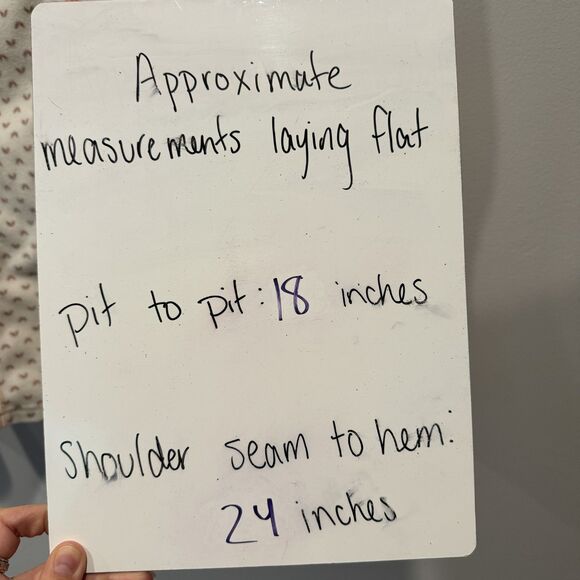 Approximate
measurements laying flat
pit to pit: 18 inches
Shoulder seam to hem:
24 inches